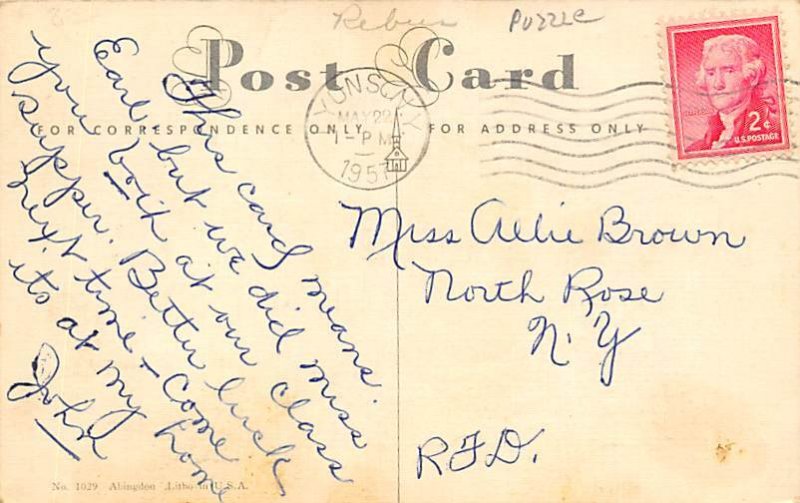 Rebus PUZZLE
Post Card
FOR CORRESPONDENCE ONLY
FOR ADDRESS ONLY
MAY 22
1 - PM
1957
2¢
U.S. POSTAGE
This card means
Earl, but we did miss
you both at our class
supper. Better luck
next time - Come
its at my home
John
Miss Allie Brown
North Rose
N. Y
R.F.D.
No. 1029 Abingdon Litho in U.S.A.